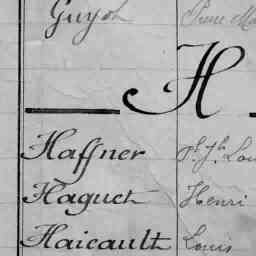 Guyot Pierre Ma
H
Haffner Pre Jh Lou
Haguet Henri
Haicault Louis